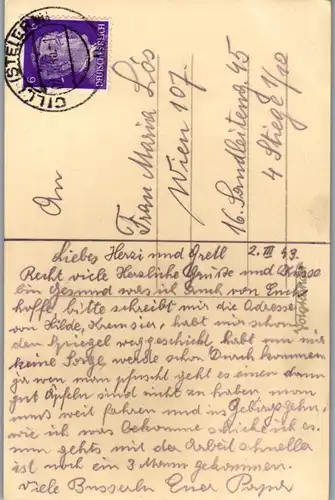 CILLI (STEIERM
DEUTSCHES REICH
6
An
Frau Maria Lös
Wien 107
16. Sandleiteng. 45
4 Stiege 1/10
2. III 43.
Liebes Herzi und Gretl
Recht viele Herzliche Grüsse und Küsse
bin Gesund was ich Auch von Euch
hoffe, bitte schreibt mir die Adresse
von Hilde, Kremsier, habt mir schon
den Spiegel weggeschickt, habt um mir
keine Sorge, werde schon Durch kommen
ja wen man pfuscht geht es einen dann
gut Äpfeln sind nicht zu haben man
muß weit fahren und ins Gebirge gehn,
wie ich was bekomme schicke ich es.
nun gehts mit der Arbeit schneller
ist noch ein 3 Mann gekommen.
Viele Busserln Euer Papa